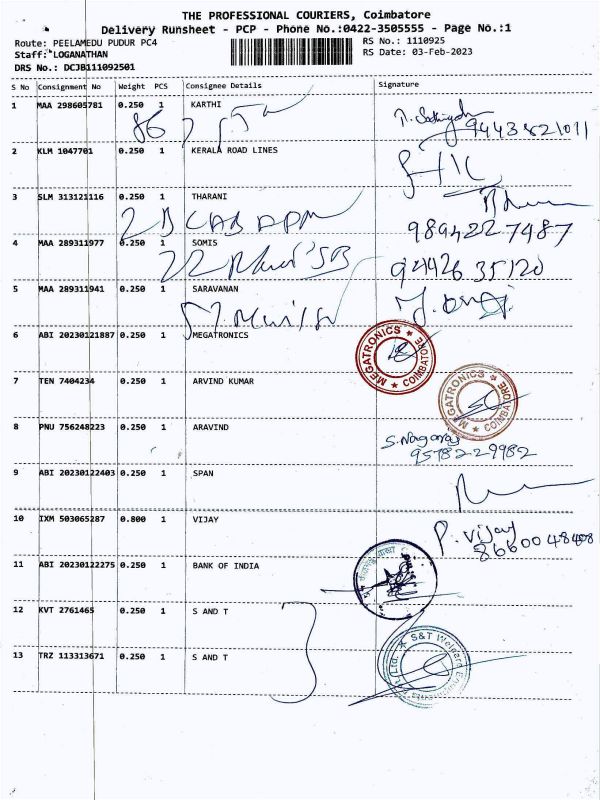 THE PROFESSIONAL COURIERS, Coimbatore
Delivery Runsheet - PCP - Phone No.:0422-3505555 - Page No.:1
Route: PEELAMEDU PUDUR PC4
RS No.: 1110925
Staff: LOGANATHAN
RS Date: 03-Feb-2023
DRS No.: DCJB111092501
S No Consignment No Weight PCS Consignee Details Signature
1 MAA 298605781 0.250 1 KARTHI
9443821011
2 KLM 1047701 0.250 1 KERALA ROAD LINES
3 SLM 313121116 0.250 1 THARANI
9894227487
4 MAA 289311977 0.250 1 SOMIS
94426 35120
5 MAA 289311941 0.250 1 SARAVANAN
6 ABI 20230121887 0.250 1 MEGATRONICS
MEGATRONICS ★ COIMBATORE ★
7 TEN 7404234 0.250 1 ARVIND KUMAR
MEGATRONICS ★ COIMBATORE ★
8 PNU 756248223 0.250 1 ARAVIND
S. Nagaraj
95782 29982
9 ABI 20230122403 0.250 1 SPAN
10 IXM 503065287 0.800 1 VIJAY
P. Vijay
8660048408
11 ABI 20230122275 0.250 1 BANK OF INDIA
12 KVT 2761465 0.250 1 S AND T
13 TRZ 113313671 0.250 1 S AND T
S&T Welfare